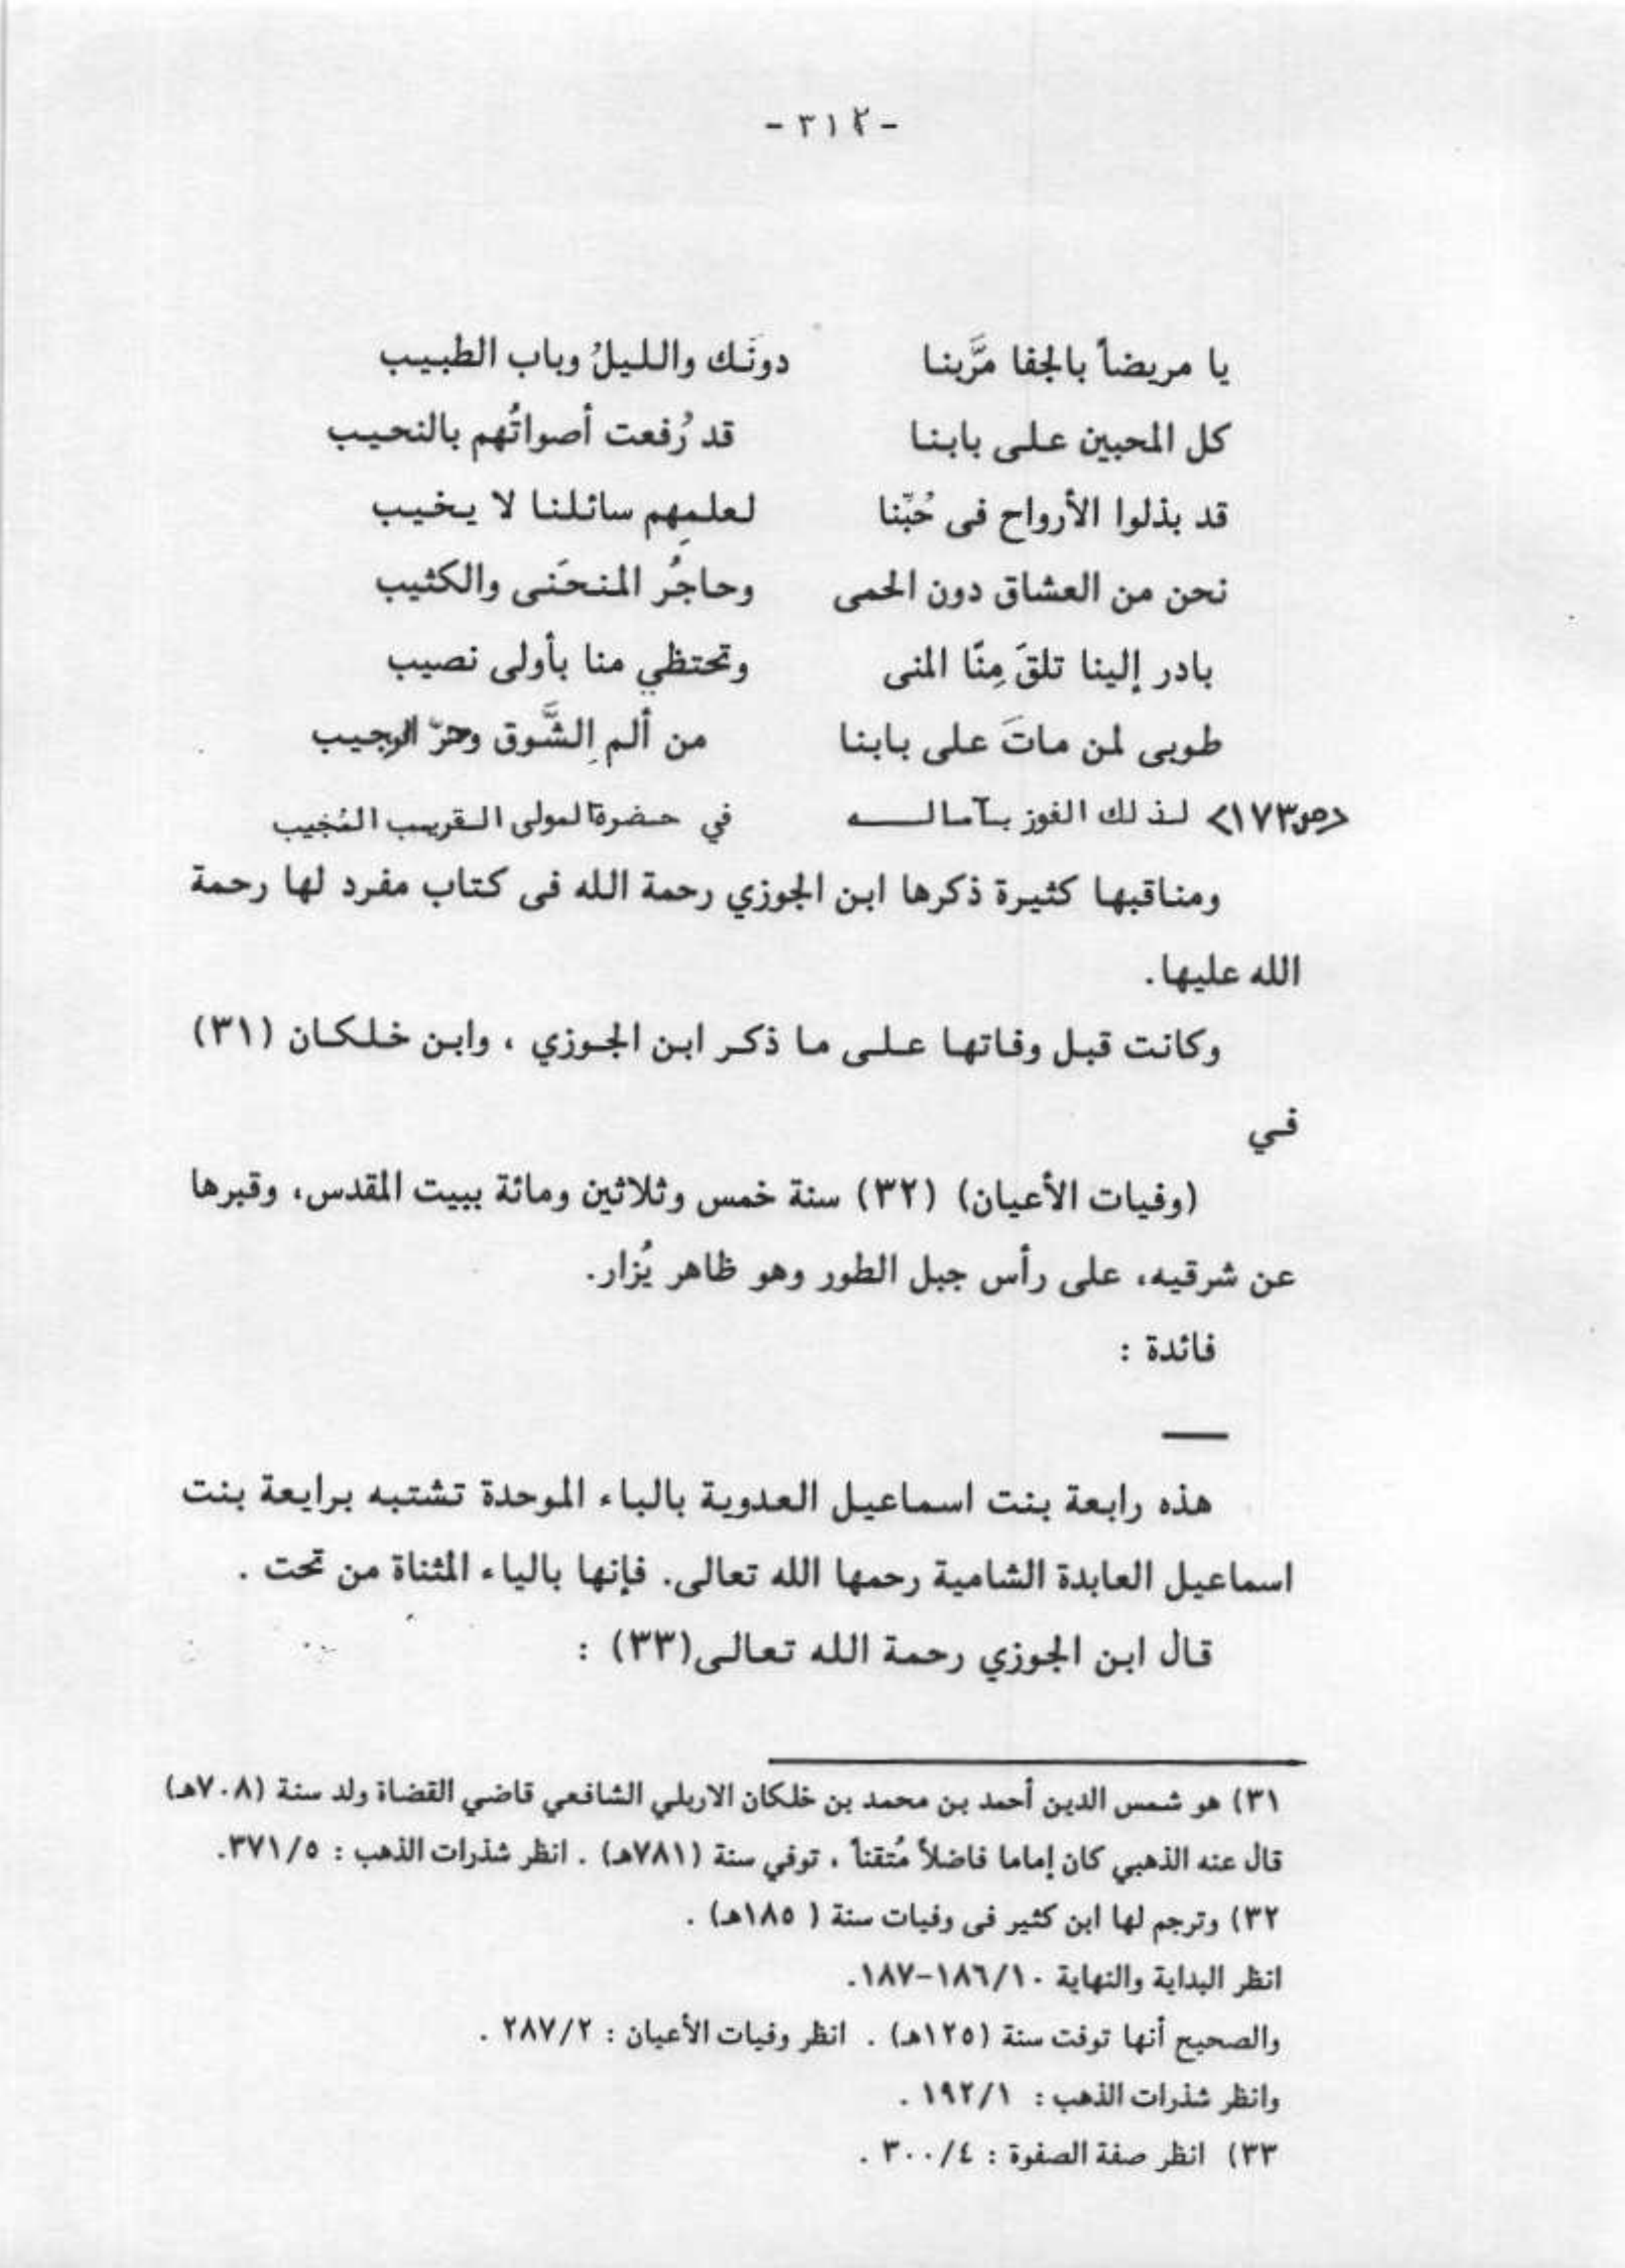 - ٣١٢ -
يا مريضاً بالجفا مَّربنا دونَك والليلُ وباب الطبيب
كل المحبين على بابنا قد رُفعت أصواتُهم بالنحيب
قد بذلوا الأرواح فى حُبّنا لعلمِهم سائلنا لا يخيب
نحن من العشاق دون الحمى وحاجُر المنحَنى والكثيب
بادر إلينا تلقَ مِنّا المنى وتحتظي منا بأولى نصيب
طوبى لمن ماتَ على بابنا من ألم الشَّوق وحرّ الوجيب
<ص١٧٣> لذلك الفوز بآماله في حضرة المولى القريب المُجيب
ومناقبها كثيرة ذكرها ابن الجوزي رحمة الله فى كتاب مفرد لها رحمة
الله عليها.
وكانت قبل وفاتها على ما ذكر ابن الجوزي ، وابن خلكان (٣١)
في
(وفيات الأعيان) (٣٢) سنة خمس وثلاثين ومائة ببيت المقدس، وقبرها
عن شرقيه، على رأس جبل الطور وهو ظاهر يُزار.
فائدة :
هذه رابعة بنت اسماعيل العدوية بالباء الموحدة تشتبه برايعة بنت
اسماعيل العابدة الشامية رحمها الله تعالى. فإنها بالياء المثناة من تحت .
قال ابن الجوزي رحمة الله تعالى(٣٣) :
٣١) هو شمس الدين أحمد بن محمد بن خلكان الاربلي الشافعي قاضي القضاة ولد سنة (٧٠٨هـ)
قال عنه الذهبي كان إماما فاضلاً مُتقناً ، توفي سنة (٧٨١هـ) . انظر شذرات الذهب : ٣٧١/٥.
٣٢) وترجم لها ابن كثير فى وفيات سنة ( ١٨٥هـ) .
انظر البداية والنهاية ١٨٦/١٠-١٨٧.
والصحيح أنها توفت سنة (١٢٥هـ) . انظر وفيات الأعيان : ٢٨٧/٢ .
وانظر شذرات الذهب : ١٩٢/١ .
٣٣) انظر صفة الصفوة : ٣٠٠/٤ .